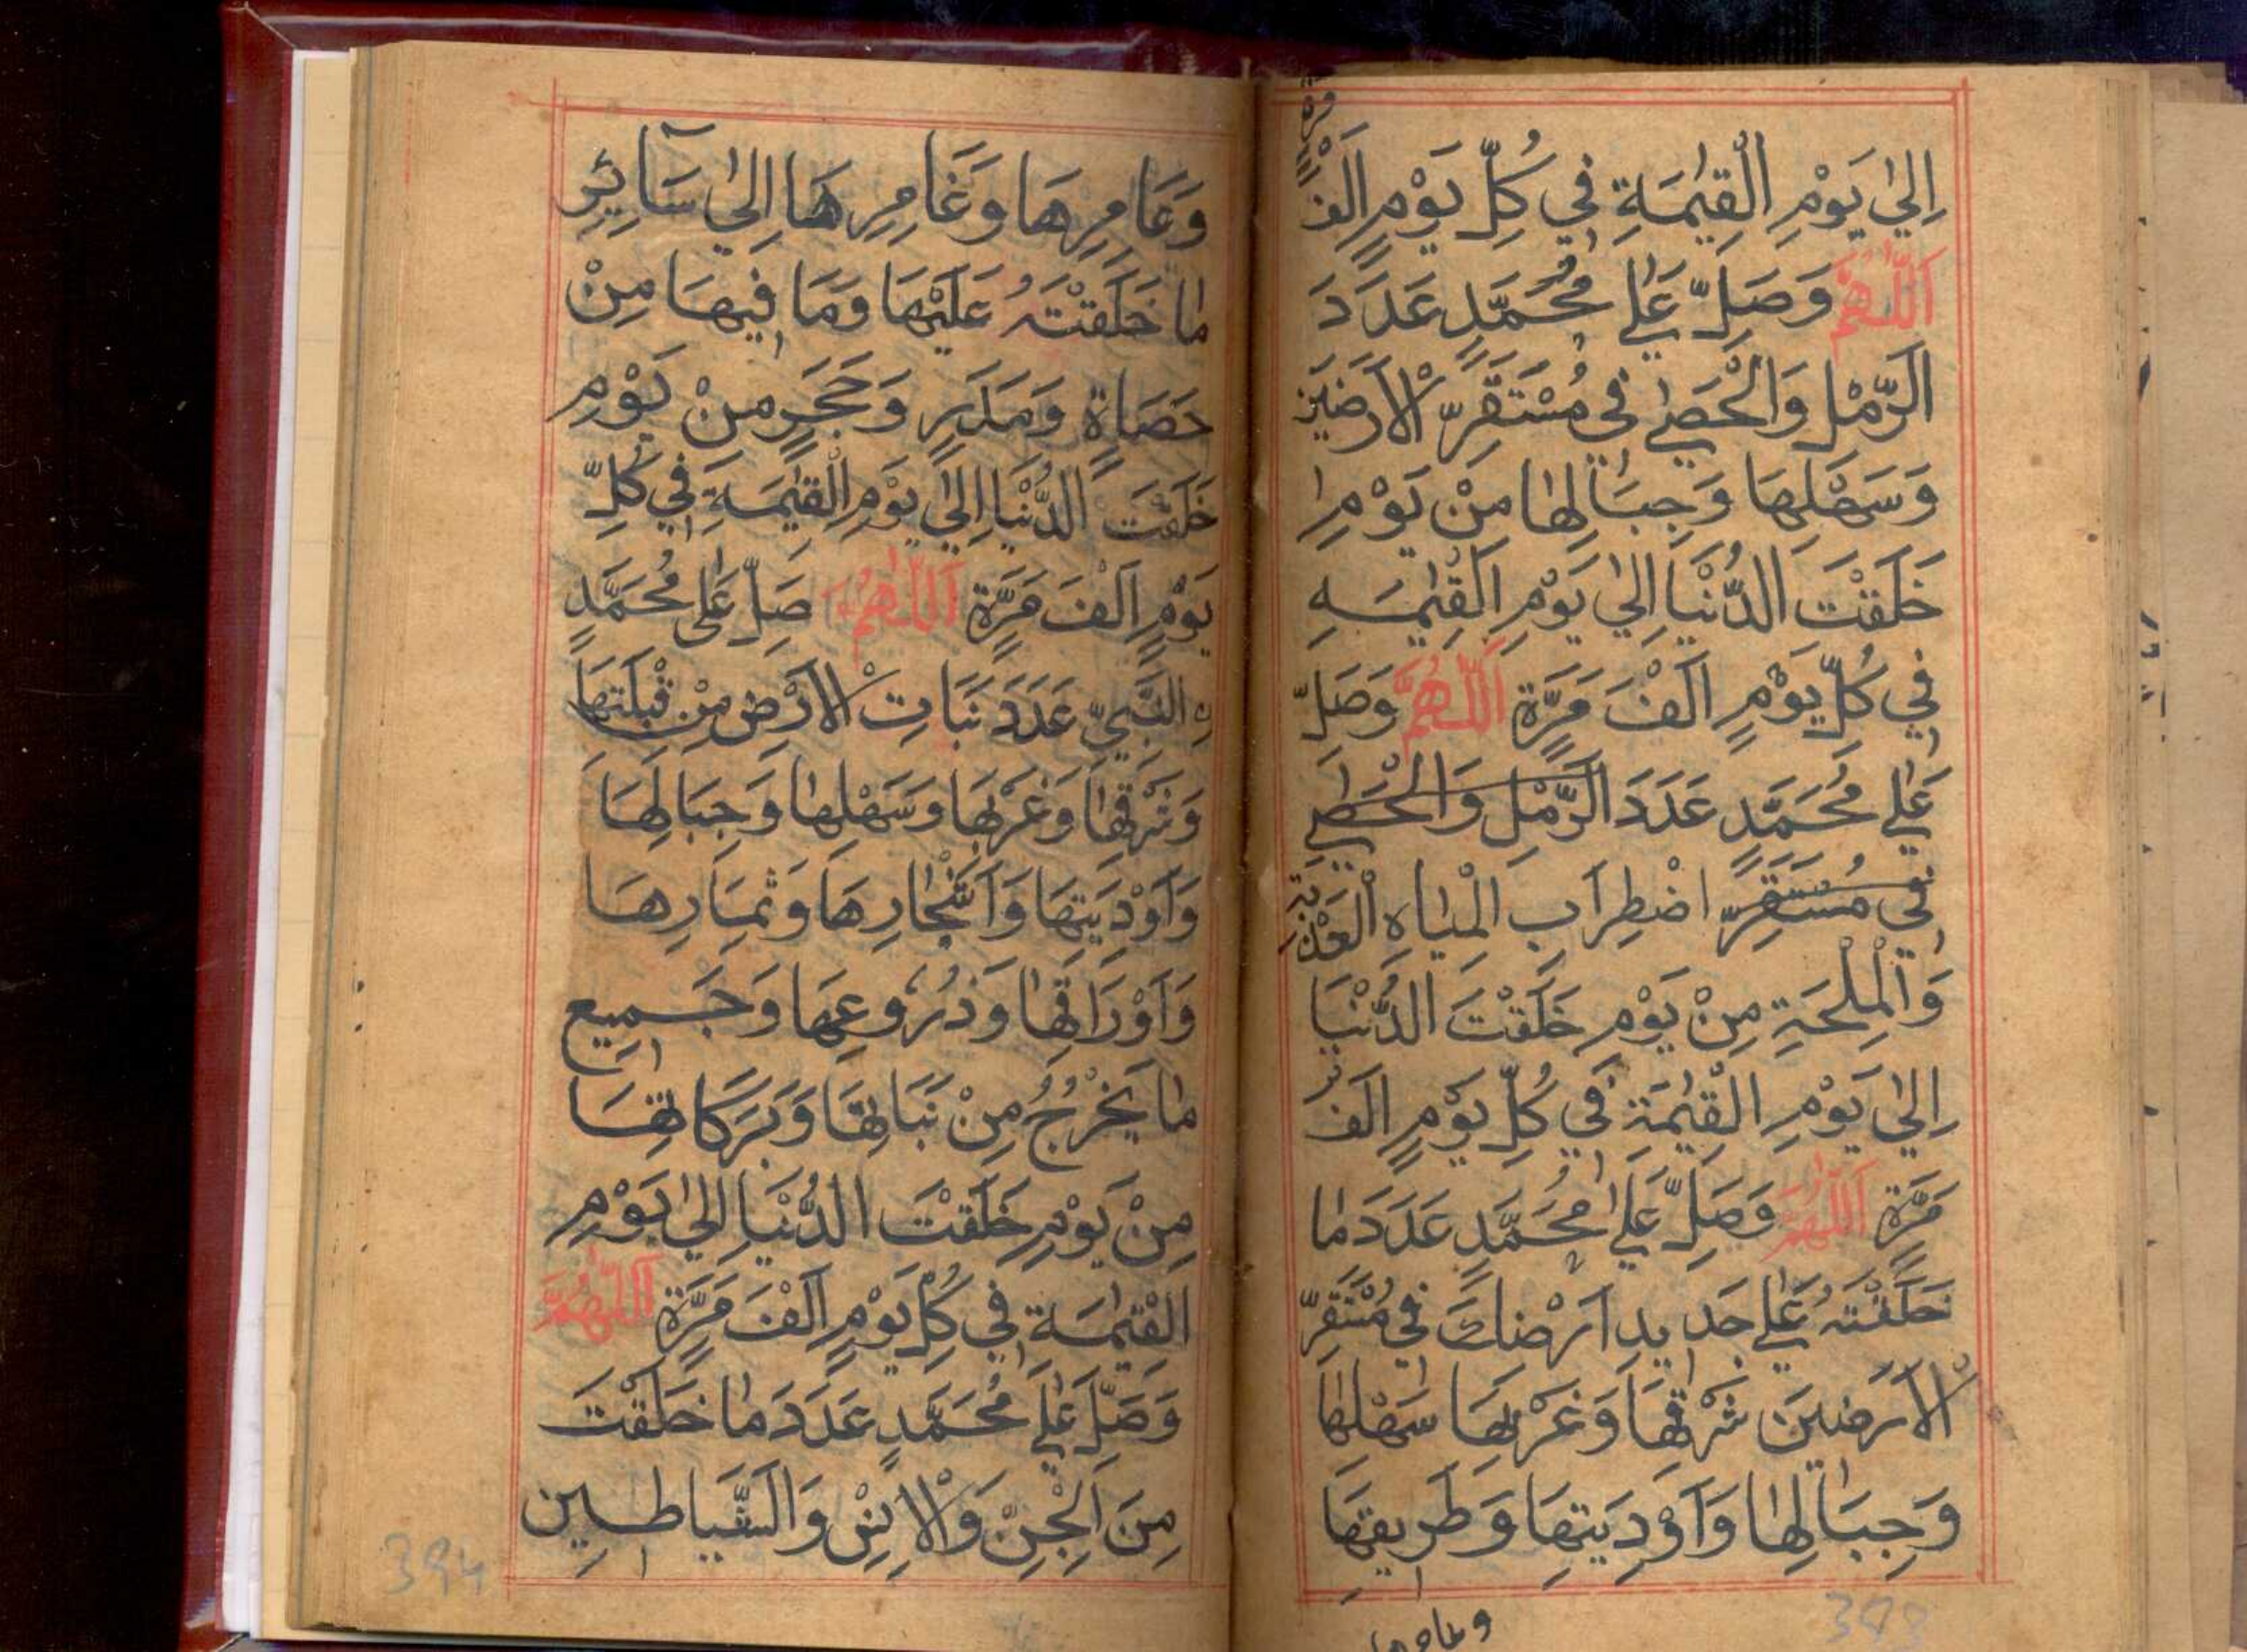 مرة
اِلىٰ يَوْمِ الْقِيٰمَةِ فِي كُلِّ يَوْمٍ اَلْفَ
اَللّٰهُمَّ وَصَلِّ عَلٰى مُحَمَّدٍ عَدَدَ
الرَّمْلِ وَالْحَصٰى فِي مُسْتَقَرِّ الْاَرَضِينَ
وَسَهْلِهَا وَجِبَالِهَا مِنْ يَوْمِ
خَلَقْتَ الدُّنْيَا اِلىٰ يَوْمِ الْقِيٰمَةِ
فِي كُلِّ يَوْمٍ اَلْفَ مَرَّةٍ اَللّٰهُمَّ وَصَلِّ
عَلٰى مُحَمَّدٍ عَدَدَ الرَّمْلِ وَالْحَصٰى
فِي مُسْتَقَرِّ اضْطِرَابِ الْمِيَاهِ الْعَذْبَةِ
وَالْمِلْحَةِ مِنْ يَوْمِ خَلَقْتَ الدُّنْيَا
اِلىٰ يَوْمِ الْقِيٰمَةِ فِي كُلِّ يَوْمٍ اَلْفَ
مَرَّةٍ اَللّٰهُمَّ وَصَلِّ عَلٰى مُحَمَّدٍ عَدَدَ مَا
خَلَقْتَهُ عَلٰى جَدِيدِ اَرْضِكَ فِي مُسْتَقَرِّ
الْاَرَضِينَ شَرْقِهَا وَغَرْبِهَا سَهْلِهَا
وَجِبَالِهَا وَاَوْدِيَتِهَا وَطَرِيقِهَا
وعامرها
393
وَعَامِرِهَا وَغَامِرِهَا اِلىٰ سَآئِرِ
مَا خَلَقْتَهُ عَلَيْهَا وَمَا فِيهَا مِنْ
حَصَاةٍ وَمَدَرٍ وَحَجَرٍ مِنْ يَوْمِ
خَلَقْتَ الدُّنْيَا اِلىٰ يَوْمِ الْقِيٰمَةِ فِي كُلِّ
يَوْمٍ اَلْفَ مَرَّةٍ اَللّٰهُمَّ صَلِّ عَلٰى مُحَمَّدٍ
نِ النَّبِيِّ عَدَدَ نَبَاتِ الْاَرْضِ مِنْ قِبْلَتِهَا
وَشَرْقِهَا وَغَرْبِهَا وَسَهْلِهَا وَجِبَالِهَا
وَاَوْدِيَتِهَا وَاَشْجَارِهَا وَثِمَارِهَا
وَاَوْرَاقِهَا وَزُرُوعِهَا وَجَمِيعِ
مَا يَخْرُجُ مِنْ نَبَاتِهَا وَبَرَكَاتِهَا
مِنْ يَوْمِ خَلَقْتَ الدُّنْيَا اِلىٰ يَوْمِ
الْقِيٰمَةِ فِي كُلِّ يَوْمٍ اَلْفَ مَرَّةٍ اَللّٰهُمَّ
وَصَلِّ عَلٰى مُحَمَّدٍ عَدَدَ مَا خَلَقْتَ
مِنَ الْجِنِّ وَالْاِنْسِ وَالشَّيَاطِينِ
394